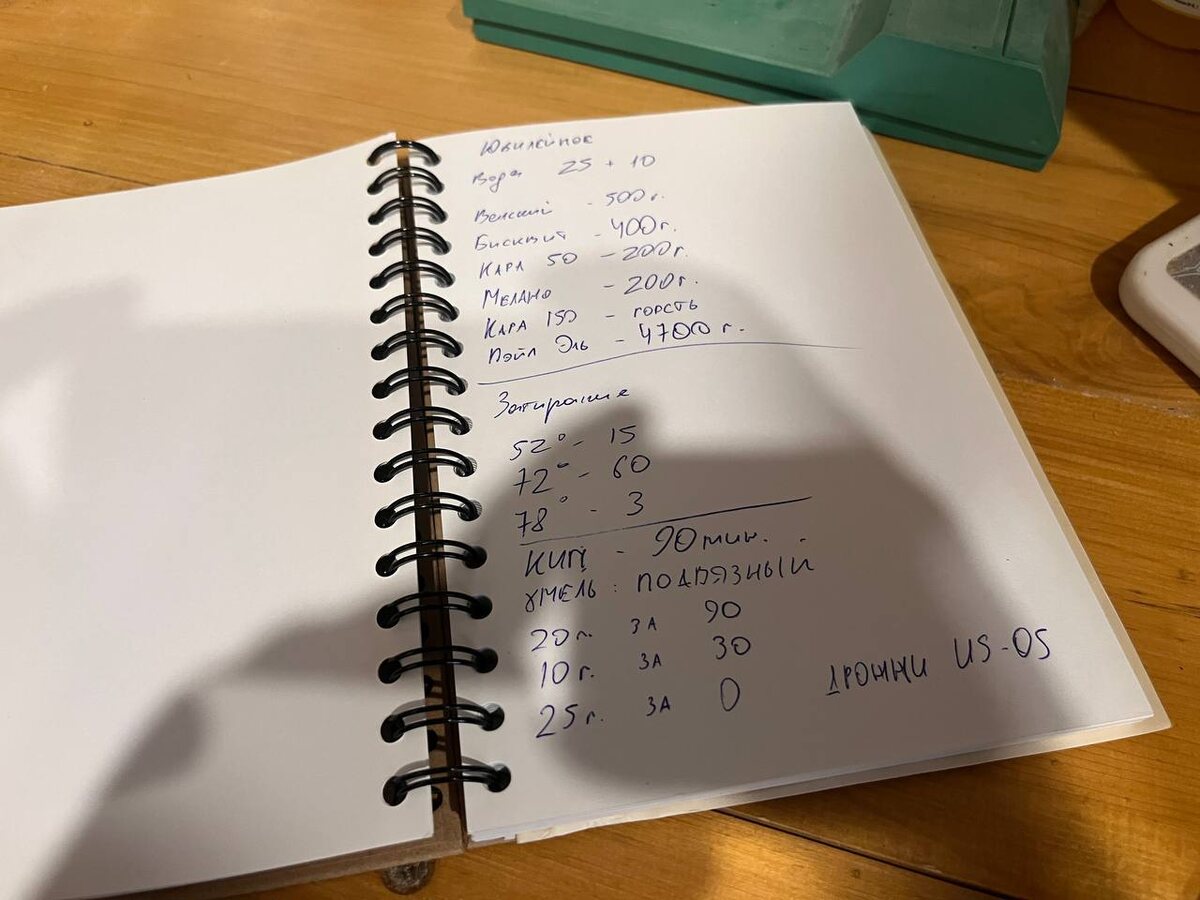 Ювилейное
Вода 25 + 10
Венский - 500г.
Бисквит - 400г.
Кара 50 - 200г.
Мелано - 200г.
Кара 150 - горсть
Пэйл Эль - 4700 г.
Затирание
52° - 15
72° - 60
78° - 3
КИП - 90 мин.
ХМЕЛЬ: ПОДВЯЗНЫЙ
20 г. ЗА 90
10 г. ЗА 30
25 г. ЗА 0
ДРОЖЖИ US-05